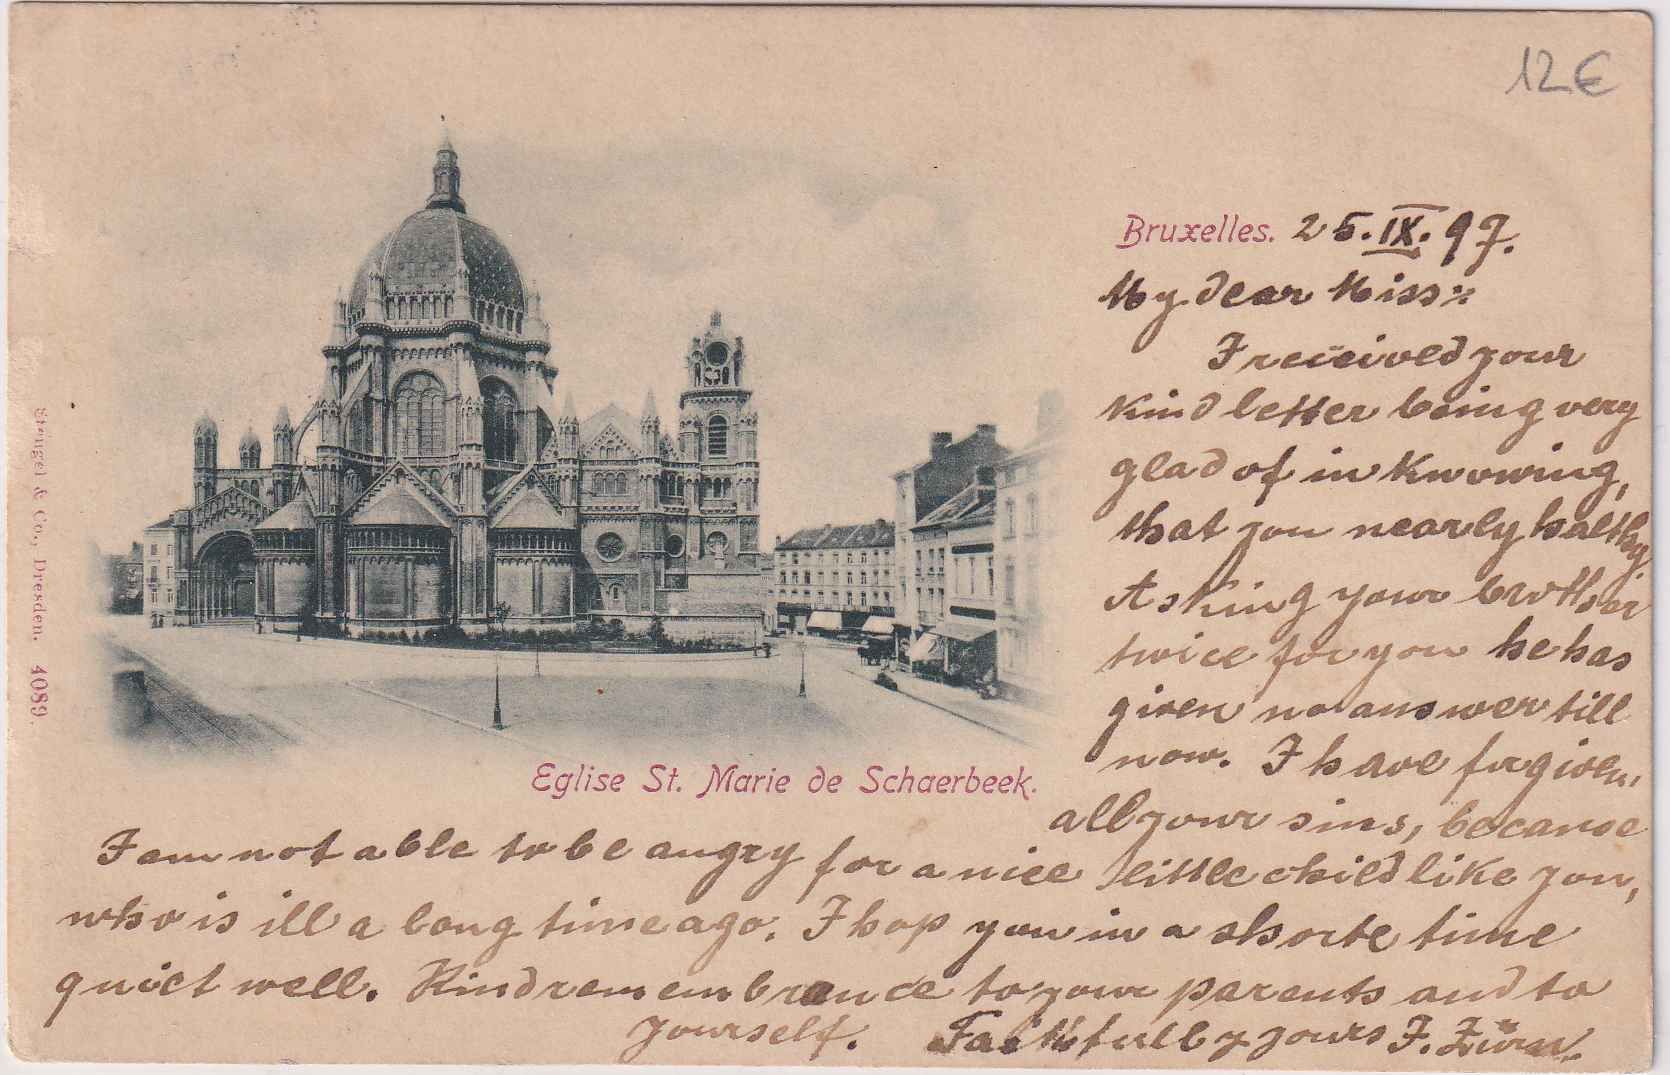 12€
Bruxelles. 25.IX.97.
My dear Miss:
I received your
kind letter being very
glad of in knowing,
that you nearly halthy.
Asking your brother
twice for you he has
given no answer till
now. I have forgiven,
all your sins, because
I am not able to be angry for a nice little child like you,
who is ill a long time ago. I hop you in a shorte time
quiet well. Kind remembrance to your parents and to
yourself. Faithfully yours J. Zürn.
Eglise St. Marie de Schaerbeek.
Stengel & Co., Dresden. 4089.